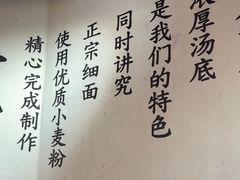 浓厚汤底
是我们的特色
同时讲究
正宗细面
使用优质小麦粉
精心完成制作